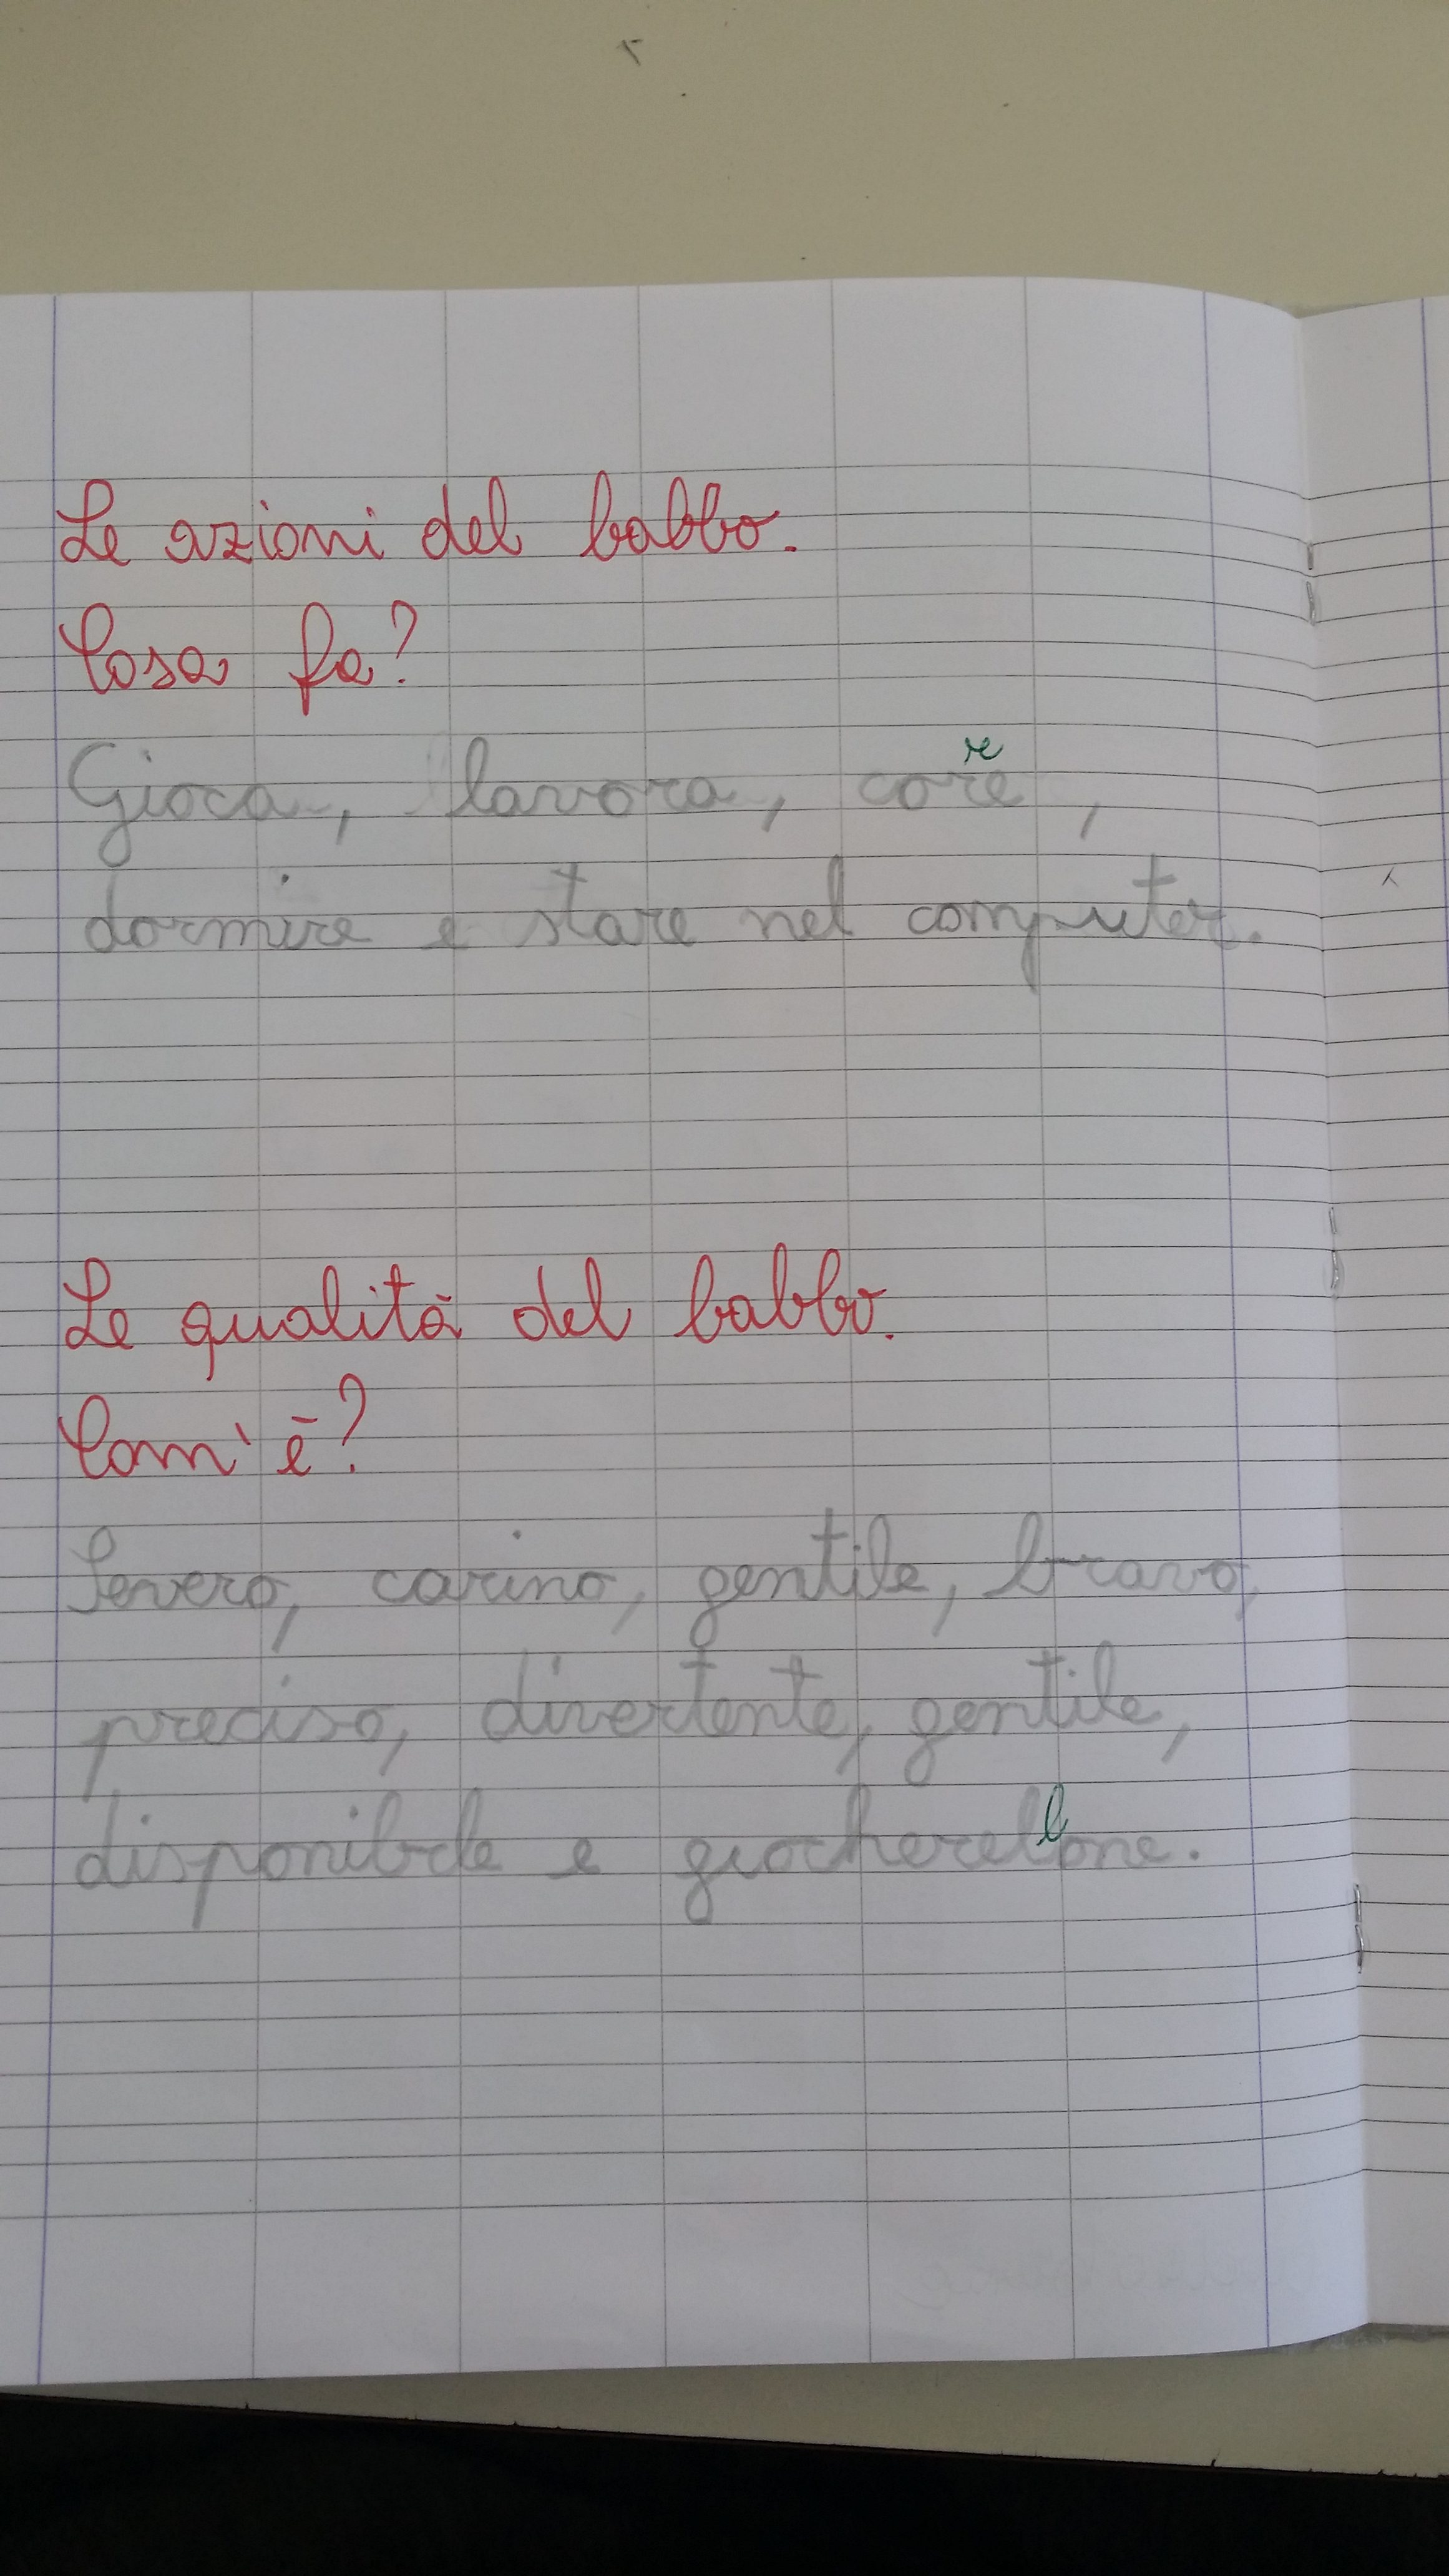 Le azioni del babbo.
Cosa fa?
Gioca, lavora, corre,
dormire e stare nel computer.
Le qualità del babbo.
Com'è?
Severo, carino, gentile, bravo,
preciso, divertente, gentile,
disponibile e giocherellone.